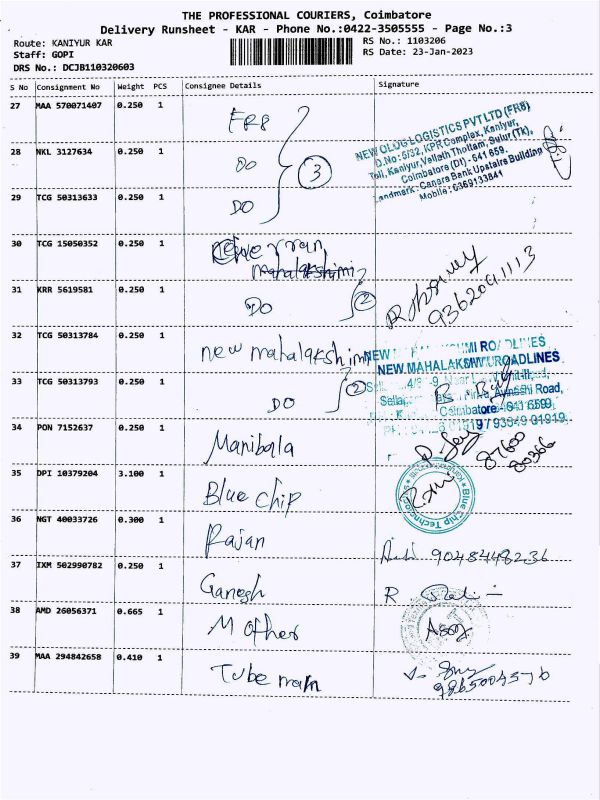 THE PROFESSIONAL COURIERS, Coimbatore
Delivery Runsheet - KAR - Phone No.:0422-3505555 - Page No.:3
Route: KANIYUR KAR
Staff: GOPI
DRS No.: DCJB110320603
RS No.: 1103206
RS Date: 23-Jan-2023
S No Consignment No Weight PCS Consignee Details Signature
27 MAA 570071407 0.250 1 FR8
28 NKL 3127634 0.250 1 DO
3
29 TCG 50313633 0.250 1 DO
NEW OLOG LOGISTICS PVT LTD (FR8)
D.No: 5/32, KPR Complex, Kaniyur,
Toll, Kaniyur, Vellath Thottam, Sulur (TK),
Coimbatore (Dt) - 641 659.
Landmark: Canara Bank Upstairs Building
Mobile: 6369133841
30 TCG 15050352 0.250 1
mahalakshimi
31 KRR 5619581 0.250 1 DO
2
9362041113
32 TCG 50313784 0.250 1 new mahalakshimi
33 TCG 50313793 0.250 1 DO
2
NEW MAHALAKSHMI ROADLINES
Avinashi Road,
Coimbatore - 641 659.
93949 01919
34 PON 7152637 0.250 1 Manibala
87600
80366
35 DPI 10379204 3.100 1 Blue chip
Blue Chip Technologies
36 NGT 40033726 0.300 1 Rajan
9048448236
37 IXM 502990782 0.250 1 Ganesh
R
38 AMD 26056371 0.665 1 Mother
39 MAA 294842658 0.410 1 Tube main